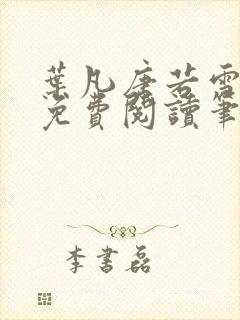 葉凡唐若雪
免費閱讀筆
李書磊